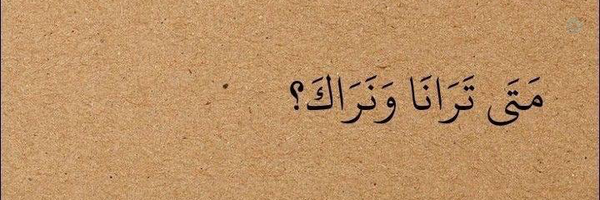 مَتَى تَرَانَا وَنَرَاكَ؟